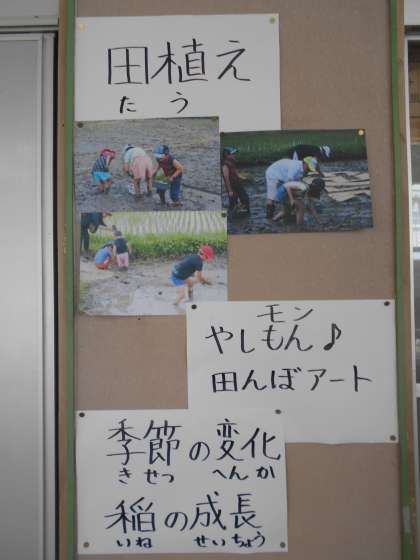 田植え
たう
モン
やしもん♪
田んぼアート
季節の変化
きせつ へんか
稲の成長
いね せいちょう